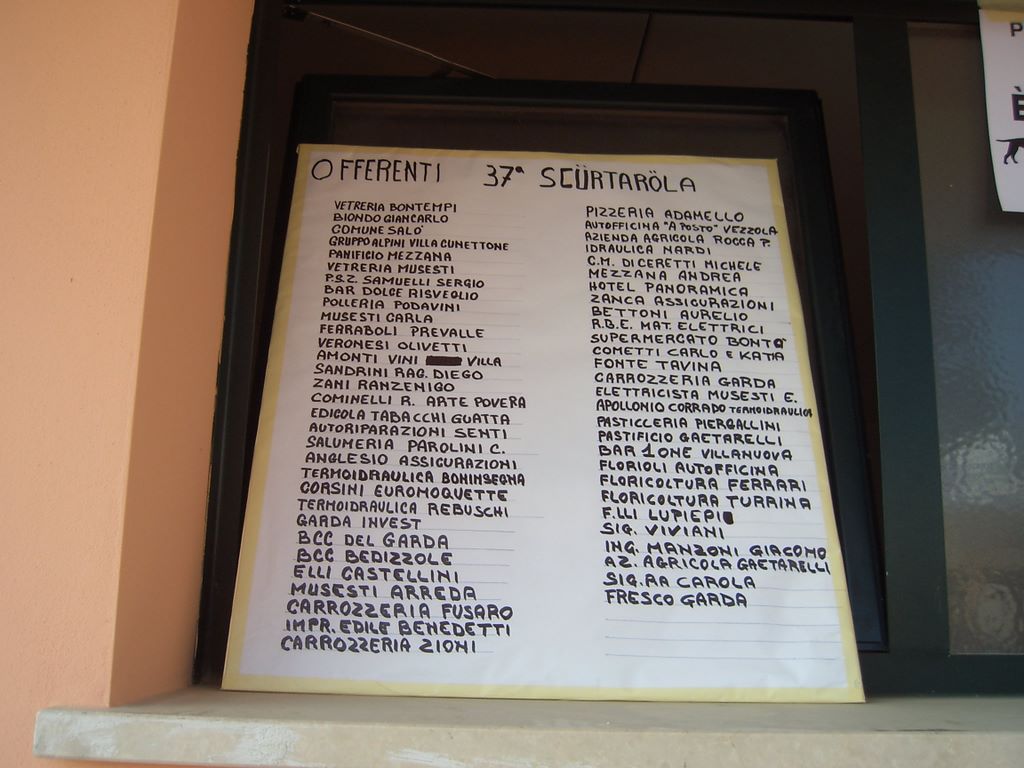 OFFERENTI 37ª SCÜRTARÖLA
VETRERIA BONTEMPI
BIONDO GIANCARLO
COMUNE SALO'
GRUPPO ALPINI VILLA CUNETTONE
PANIFICIO MEZZANA
VETRERIA MUSESTI
P.&Z. SAMUELLI SERGIO
BAR DOLCE RISVEGLIO
POLLERIA PODAVINI
MUSESTI CARLA
FERRABOLI PREVALLE
VERONESI OLIVETTI
AMONTI VINI VILLA
SANDRINI RAG. DIEGO
ZANI RANZENIGO
COMINELLI R. ARTE POVERA
EDICOLA TABACCHI GUATTA
AUTORIPARAZIONI SENTI
SALUMERIA PAROLINI C.
ANGLESIO ASSICURAZIONI
TERMOIDRAULICA BONINSEGNA
CORSINI EUROMOQUETTE
TERMOIDRAULICA REBUSCHI
GARDA INVEST
BCC DEL GARDA
BCC BEDIZZOLE
ELLI CASTELLINI
MUSESTI ARREDA
CARROZZERIA FUSARO
IMPR. EDILE BENEDETTI
CARROZZERIA ZIONI
PIZZERIA ADAMELLO
AUTOFFICINA "A POSTO" VEZZOLA
AZIENDA AGRICOLA ROCCA P.
IDRAULICA NARDI
C.M. DI CERETTI MICHELE
MEZZANA ANDREA
HOTEL PANORAMICA
ZANCA ASSICURAZIONI
BETTONI AURELIO
R.B.E. MAT. ELETTRICI
SUPERMERCATO BONTA'
COMETTI CARLO E KATIA
FONTE TAVINA
CARROZZERIA GARDA
ELETTRICISTA MUSESTI E.
APOLLONIO CORRADO TERMOIDRAULICA
PASTICCERIA PIERGALLINI
PASTIFICIO GAETARELLI
BAR 1ONE VILLANUOVA
FLORIOLI AUTOFFICINA
FLORICOLTURA FERRARI
FLORICOLTURA TURRINA
F.LLI LUPIEPI
SIG. VIVIANI
ING. MANZONI GIACOMO
AZ. AGRICOLA GAETARELLI
SIG.RA CAROLA
FRESCO GARDA
P
È